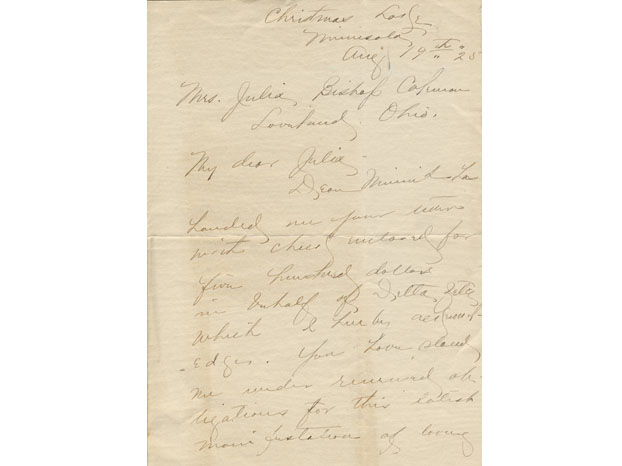 Christmas Lodge
Minnisota
Aug 19th " 25
Mrs. Julia, Bishop Coleman
Loveland, Ohio.
My dear Julia,
Dean Minnick has
handed me your letter
with check enclosed for
five hundred dollars
in behalf of Delta Zeta
which I hereby acknowl-
edge. You have placed
me under renewed ob-
ligations for this latest
manifestation of loving